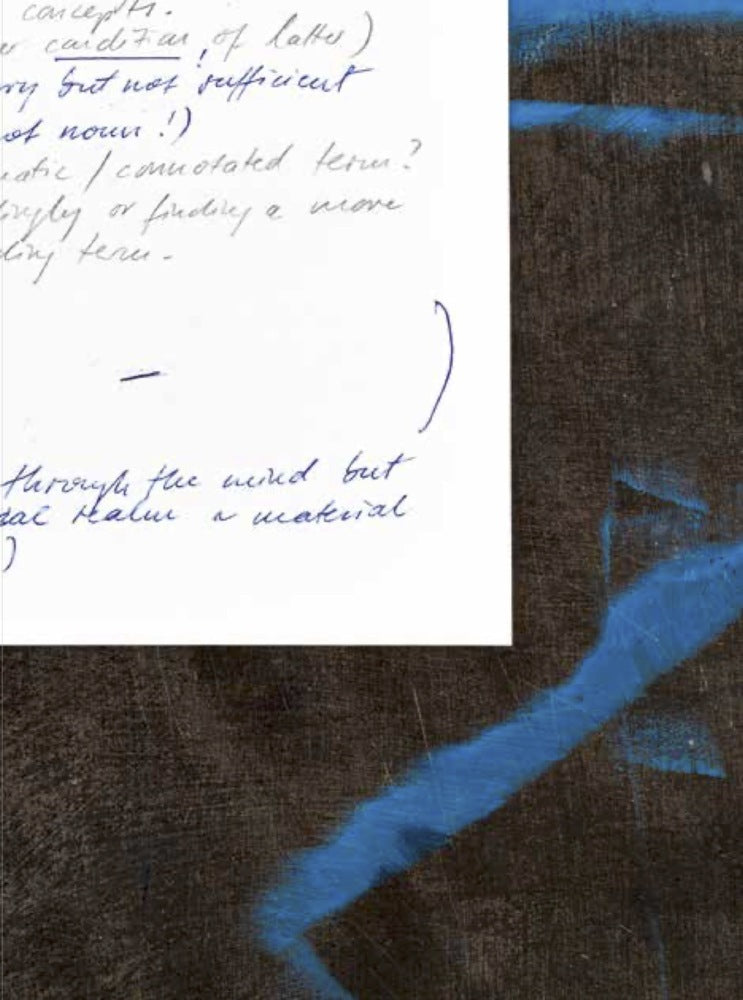 concepts.
condition, of latter)
but not sufficient
not noun!)
/ connotated term?
or finding a more
term.
—
)
through the mind but
realm material
)